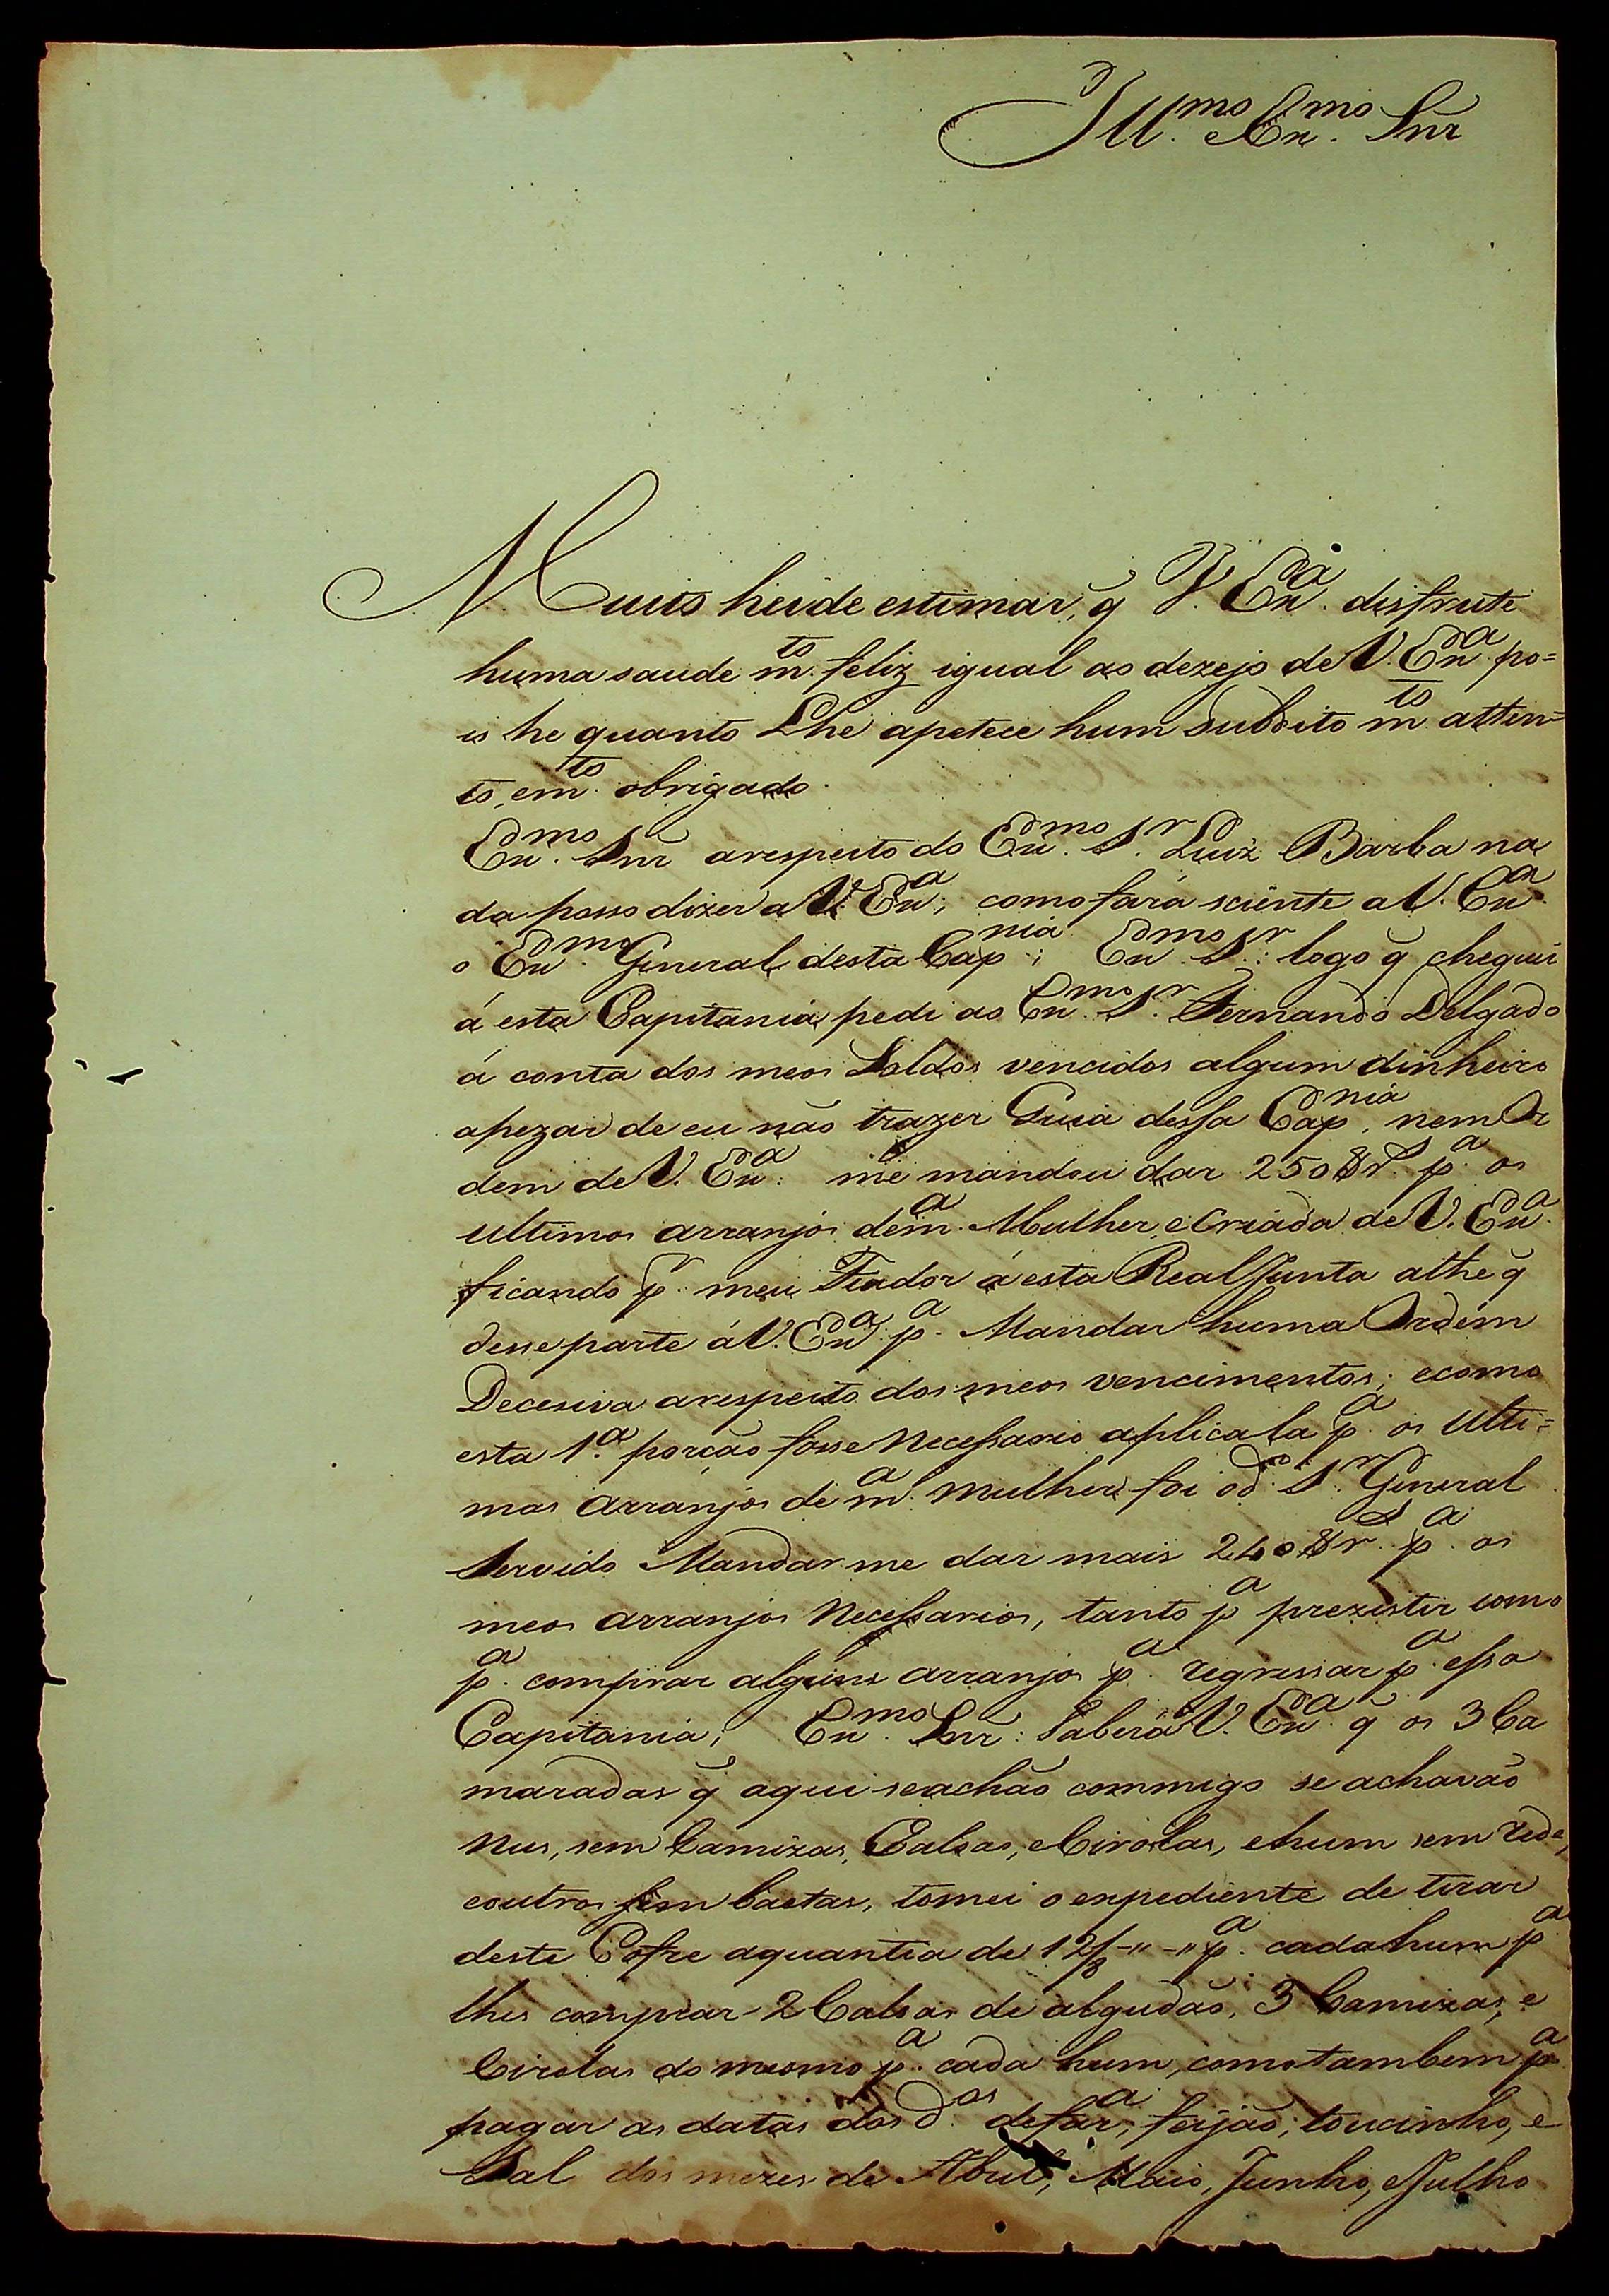 Ill.mo e Ex.mo Snr
Muito heide estimar, q̃ V. Ex.a disfrute
huma saude m.to feliz igual ao dezejo de V. Ex.a po=
is he quanto Lhe apetece hum subdito m.to atten=
to, e m.to obrigado.
Ex.mo Snr arespeito do Ex.mo S.r Luiz Barba na
da posso dizer a V. Ex.a; como fará sciente a V. Ex.a
o Ex.mo General desta Cap.nia; Ex.mo S.r: logo q̃ cheguei
á esta Capitania, pedi ao Ex.mo S.r Fernando Delgado
á conta dos meos Soldos vencidos algum dinheiro
apezar de eu não trazer Guia dessa Cap.nia, nem Or
dem de V. Ex.a: me mandou dar 250$r.s p.a os
ultimos arranjos de m.a Mulher, e Criada de V. Ex.a
ficando p.r meu Fiador á esta Real Junta athe q̃
desse parte á V. Ex.a p.a Mandar huma Ordem
Decesiva arespeito dos meos vencimentos; ecomo
esta 1.a porcão fosse Necessario aplicala p.a os Ulti=
mos arranjos de m.a mulher foi o d.o S.r General
Servido Mandar-me dar mais 240$r.s p.a os
meos arranjos Necessarios, tanto p.a prezistir como
p.a comprar alguns arranjos p.a regressar p.a essa
Capitania; Ex.mo Snr: Saberá V. Ex.a q̃ os 3 Ca
maradas q̃ aqui seachão commigo se achavão
Nus, sem Camizas, Calsas, e Cirolas, ehum sem rede,
eoutros sem baetas, tomei o expediente de tirar
deste Cofre aquantia de 12/8-"-" p.a cada hum p.a
lhes comprar 2 Calsas de algudão, 3 Camizas, e
Cirolas do mesmo p.a cada hum, como tambem p.a
pagar as datas dos d.os de far.a, feijão, toucinho, e
Sal dos mezes de Abril, Maio, Junho, e Julho